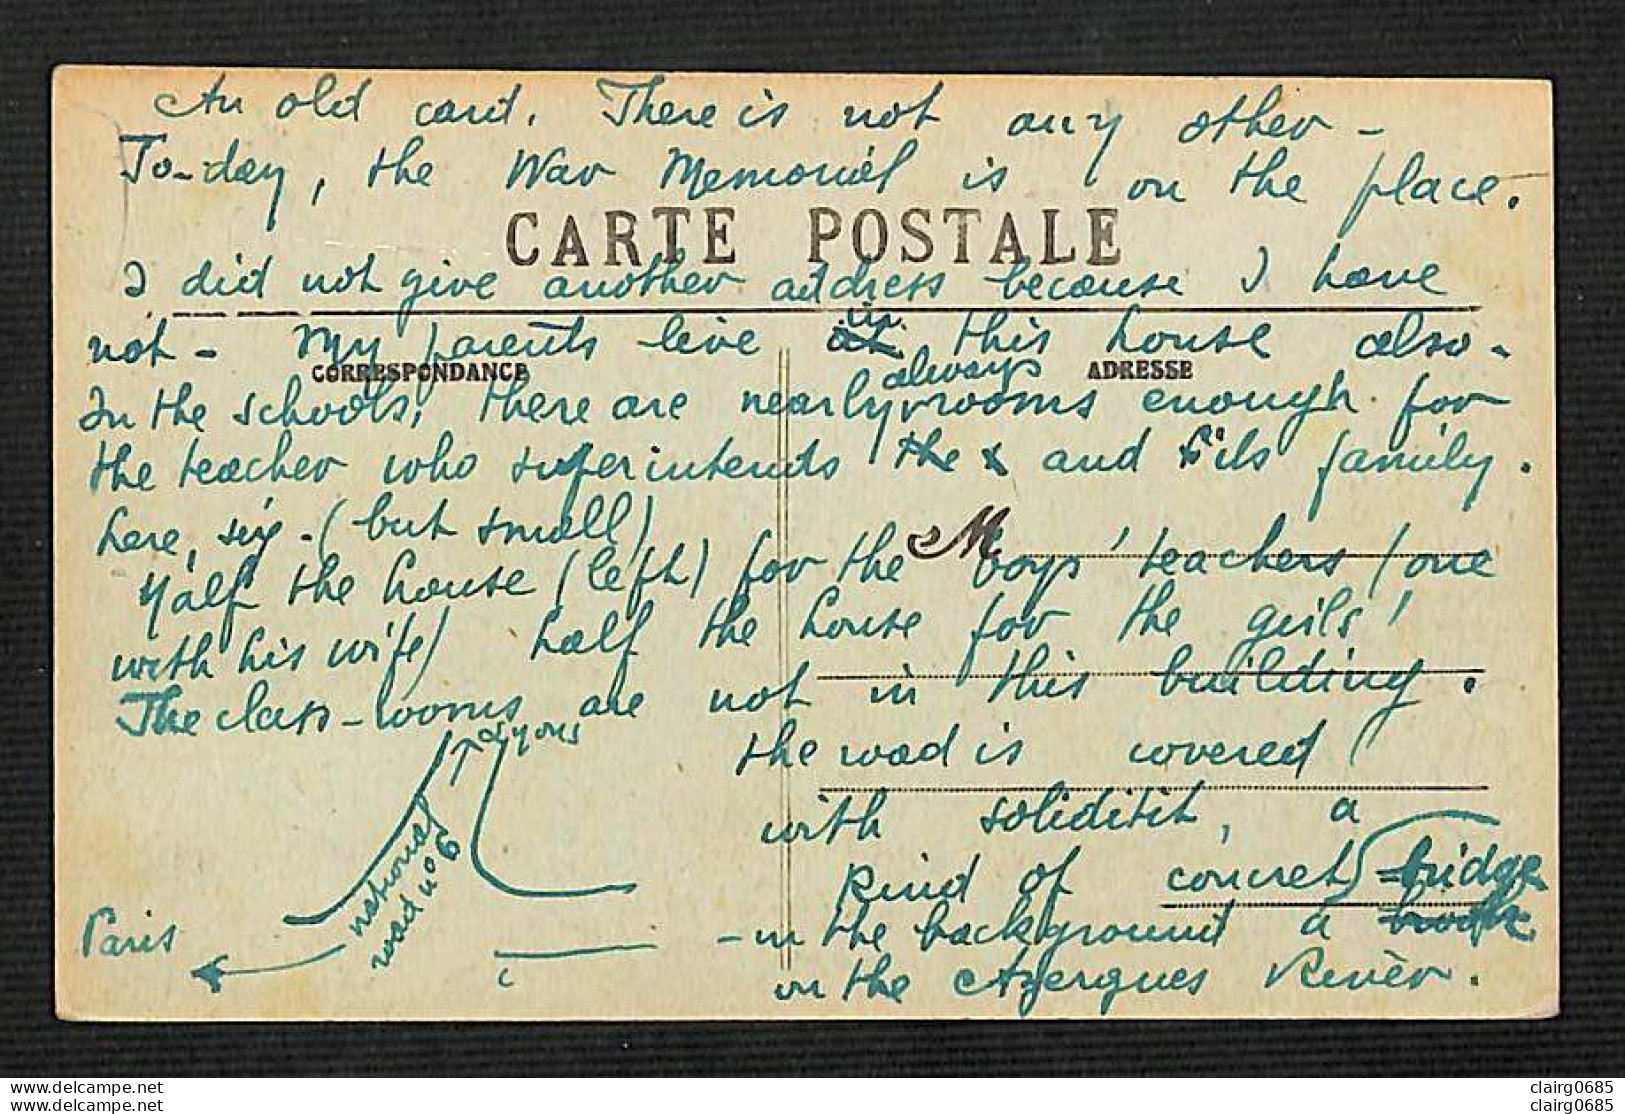 An old card. There is not any other -
To-day, the War Memorial is on the place.
CARTE POSTALE
I did not give another address because I have
not - My parents live in this house also.
CORRESPONDANCE
ADRESSE
always
In the schools, there are nearly rooms enough for
the teacher who superintends the and his family.
here, six. (but small)
Half the house (left) for the boys' teachers (one
M
with his wife) half the house for the girls'
The class-rooms are not in this building.
Lyons
the road is covered
with soliditit, a
kind of concret
national
road no 6
Paris
- in the background a bridge
on the Azergues River.
www.delcampe.net
www.delcampe.net
clairg0685
clairg0685